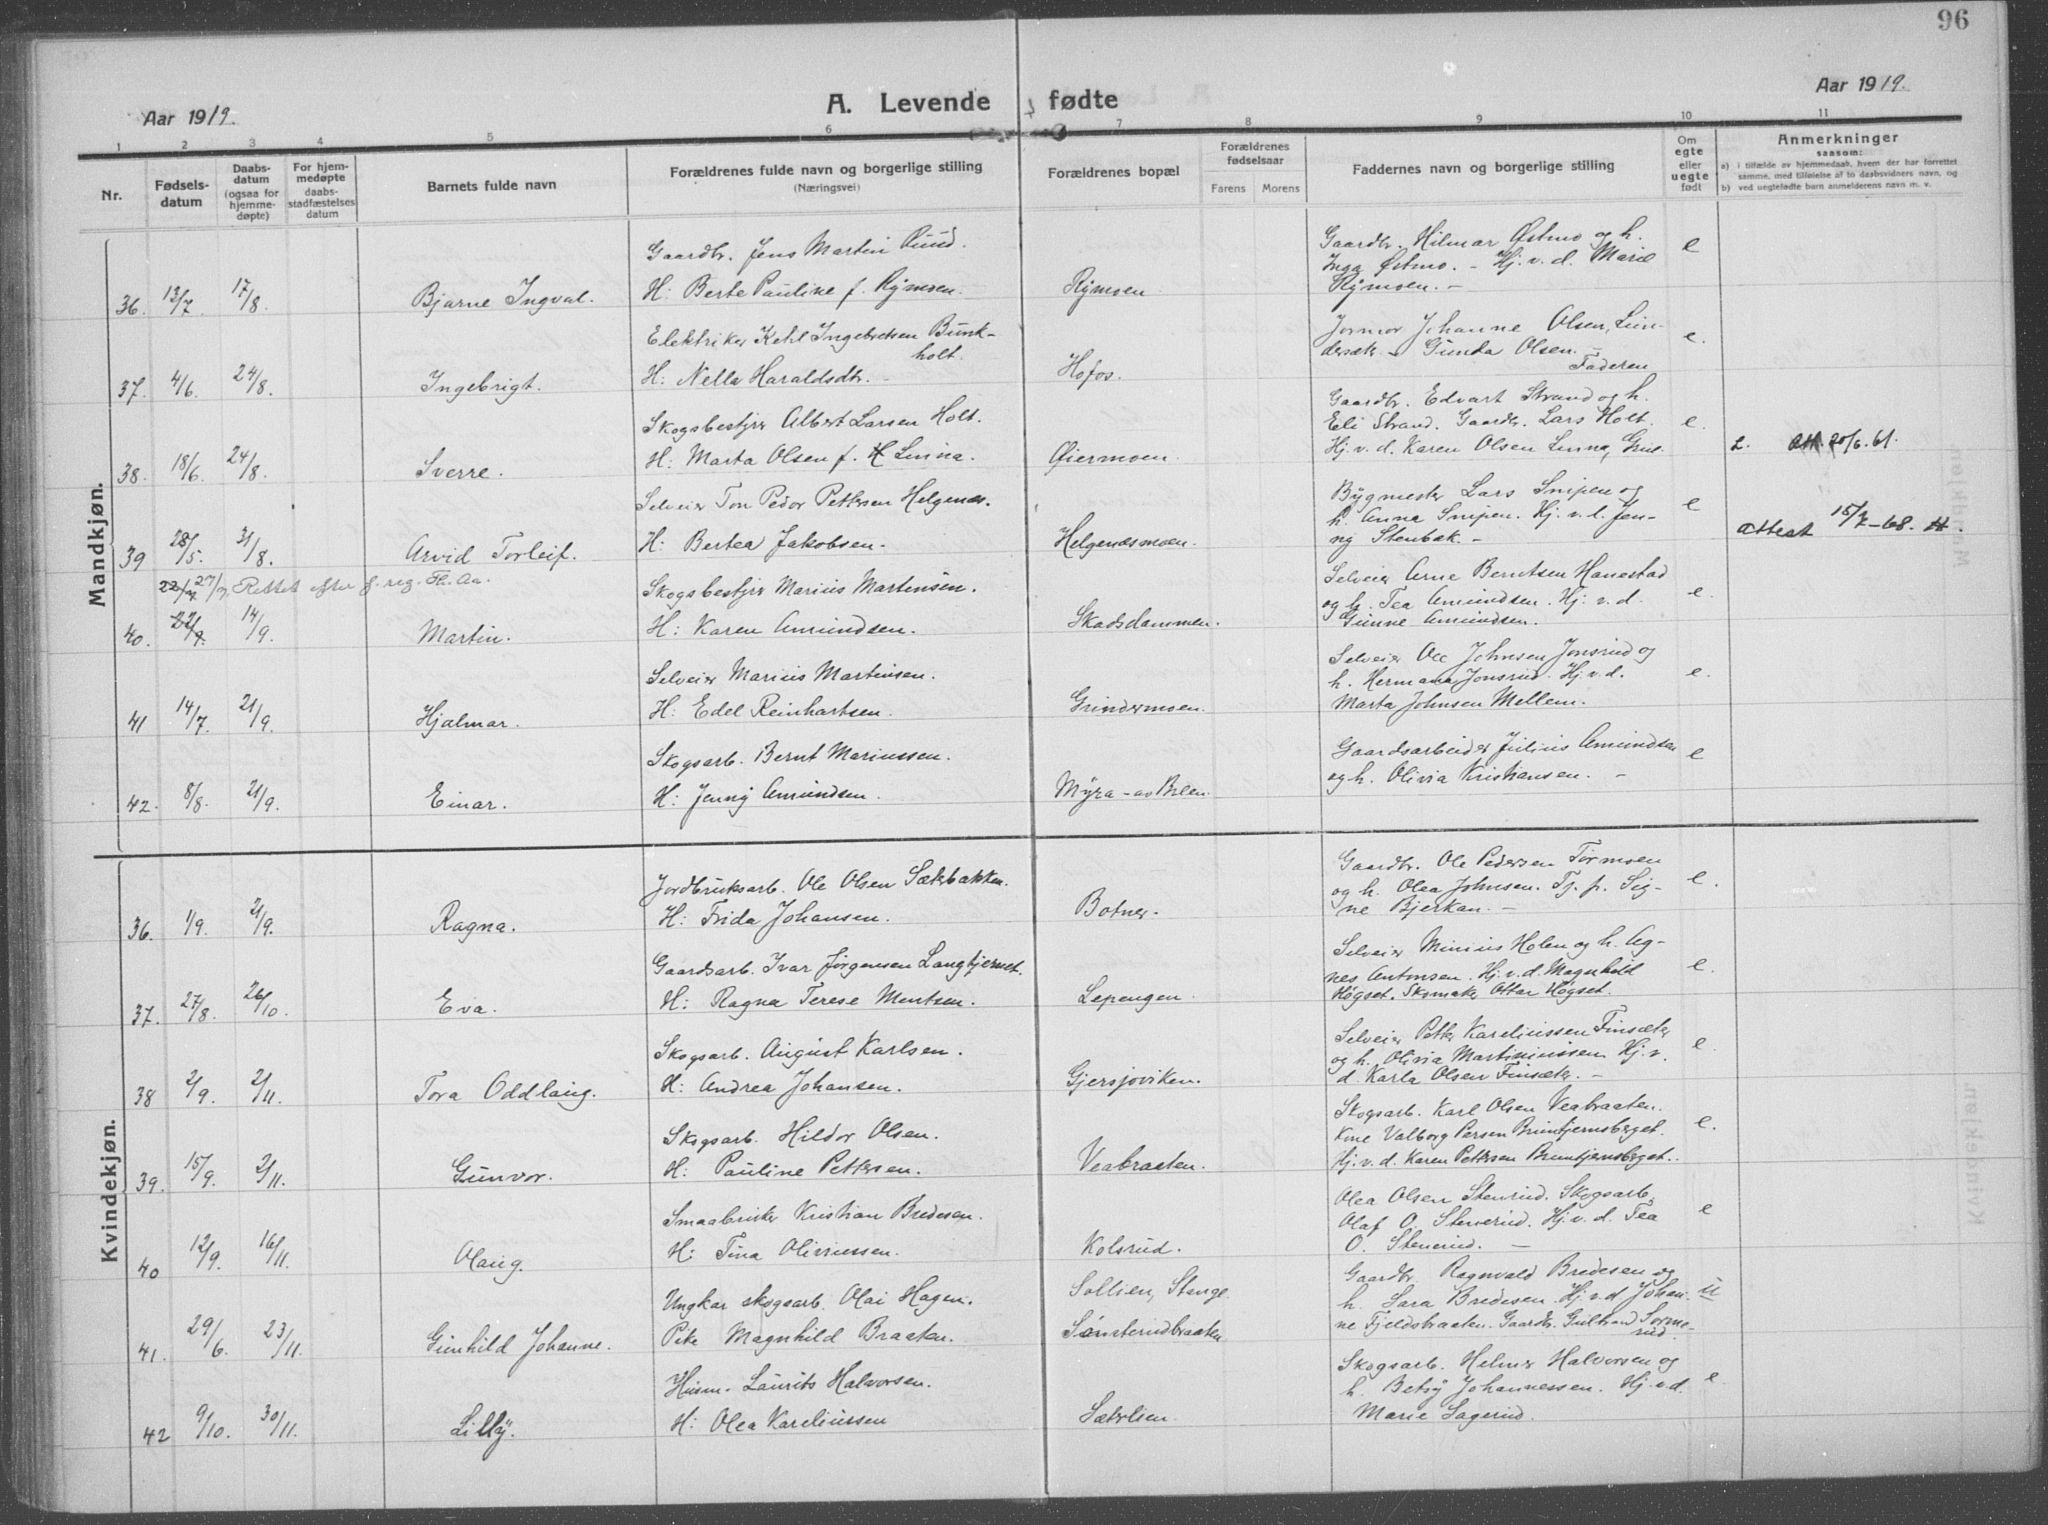 96
Aar 1919.
A. Levende fødte
Aar 1919.
1 2 3 4 5 6 7 8 9 10 11
Nr.
Fødsels-
datum
Daabs-
datum
(ogsaa for
hjemme-
døpte)
For hjem-
medøpte
daabs-
stadfæstelses
datum
Barnets fulde navn
Forældrenes fulde navn og borgerlige stilling
(Næringsvei)
Forældrenes bopæl
Forældrenes
fødselsaar
Farens Morens
Faddernes navn og borgerlige stilling
Om
egte
eller
uegte
født
Anmerkninger
saasom:
a) i tilfælde av hjemmedaab, hvem der har forrettet
samme, med tilføielse af to daabsvidners navn, og
b) ved uegtefødte barn anmelderens navn m. v.
Mandkjøn.
36. 13/7. 17/8. Bjarne Ingval.
Gaardbr. Jens Martin Ruud.
H: Berte Pauline f. Rymoen.
Rymoen
Gaardbr. Hilmar Østmo og h.
Inga Østmo. - Hj.v.d. Marie
Rymoen. -
e
37. 4/6. 24/8. Ingebrigt.
Elektriker Ketil Ingebretsen Bunk-
holt.
H: Nella Haraldsdtr. -
Hofos.
Jormor Johanne Olsen, Lun-
dersæt. - Gunda Olsen. -
Faderen
e.
38. 18/6. 24/8. Sverre.
Skogsbestyrer Albert Larsen Holt.
H: Marta Olsen f. Linna.
Øiermoen.
Gaardbr. Edvart Strand og h.
Eli Strand. Gaardbr. Lars Holt.
Hj.v.d. Karen Olsen Linna, Grue.
e.
2. att. 20/6.61.
39 28/5. 31/8. Arvid Torleif.
Selveier Ton Pedor Pettersen Helgenæs.
H: Bertea Jakobsen.
Helgenæsmoen.
Bygmester Lars Snipen og
h. Anna Snipen. Hj.v.d. Jen-
ny Stenbæk. -
e
Attest 15/7-68. H.
22/7 27/7, Rettet efter f. reg. Th. Aa.
40. 22/7. 14/9. Martin.
Skogsbestyrer Marius Martinsen.
H: Karen Amundsen.
Skadsdammen.
Selveier Arne Berntsen Hanestad
og h. Tea Amundsen. Hj.v.d.
Gunne Amundsen.
e.
41 14/7. 21/9. Hjalmar.
Selveier Marius Martinsen.
H: Edel Reinhartsen.
Grindermoen.
Selveier Ole Johnsen Jonsrud og
h. Hermana Jonsrud. Hj.v.d.
Marta Johnsen Mellem.
e.
42. 8/8. 21/9. Einar.
Skogsarb. Bernt Mariussen.
H: Jenny Amundsen.
Myra - av Bren.
Gaardsarbeider Julius Amundsen
og h. Olivia Kristiansen. -
e
Kvindekjøn.
36. 1/9. 21/9. Ragna.
Jordbruksarb. Ole Olsen Sæterbakken.
H: Frida Johansen.
Botner.
Gaardbr. Ole Pedersen Tormoen
og h. Olea Johnsen. Tj. p. Sig-
ne Bjerkan. -
e.
37. 27/8. 26/10. Eva.
Gaardsarb. Ivar Jørgensen Langtjernet.
H: Ragna Terese Mentsen.
Lepengen.
Selveier Minius Holen og h. Ag-
nes Antonsen. Hj.v.d. Magnhild
Høgset. Skomaker Ottar Høgset.
e.
38 2/9. 2/11. Tora Oddlaug.
Skogsarb. August Karlsen.
H: Andrea Johansen.
Gjersjoviken.
Selveier Petter Karelinssen Finsæter
og h. Olivia Martiniussen. Hj.v.
d. Karla Olsen Finsæter. -
e.
39. 15/9. 2/11. Gunvor.
Skogsarb. Hildor Olsen.
H: Pauline Pettersen.
Veabraaten.
Skogsarb. Karl Olsen Veabraaten.
Kone Valborg Persen Bruntjernsberget.
Hj.v.d. Karen Pettersen Bruntjernsberget.
e.
40 12/9. 16/11. Olaug.
Smaabruker Kristian Bredesen.
H: Tina Oliviussen.
Kolsrud.
Olea Olsen Stenrud. Skogsarb.
Olaf O. Stenerud. Hj.v.d. Tea
O. Stenerud. -
e
41. 29/6. 23/11. Gunhild Johanne.
Ungkar skogsarb. Olai Hagen.
Pike Magnhild Braaten.
Sollien, Stange
Sønsterudbraaten
Gaardbr. Ragnvald Bredesen og
h. Sara Bredesen. Hj.v.d. Johan-
ne Fjeldsbraaten. Gaardbr. Gulbrand Sorme-
rud.
u
42 9/10. 30/11. Lilly.
Husm. Laurits Halvorsen.
H: Olea Kareliussen
Sæterlien.
Skogsarb. Helmer Halvorsen og
h. Betsy Johannessen. Hj.v.d.
Marie Sagerud.
e.